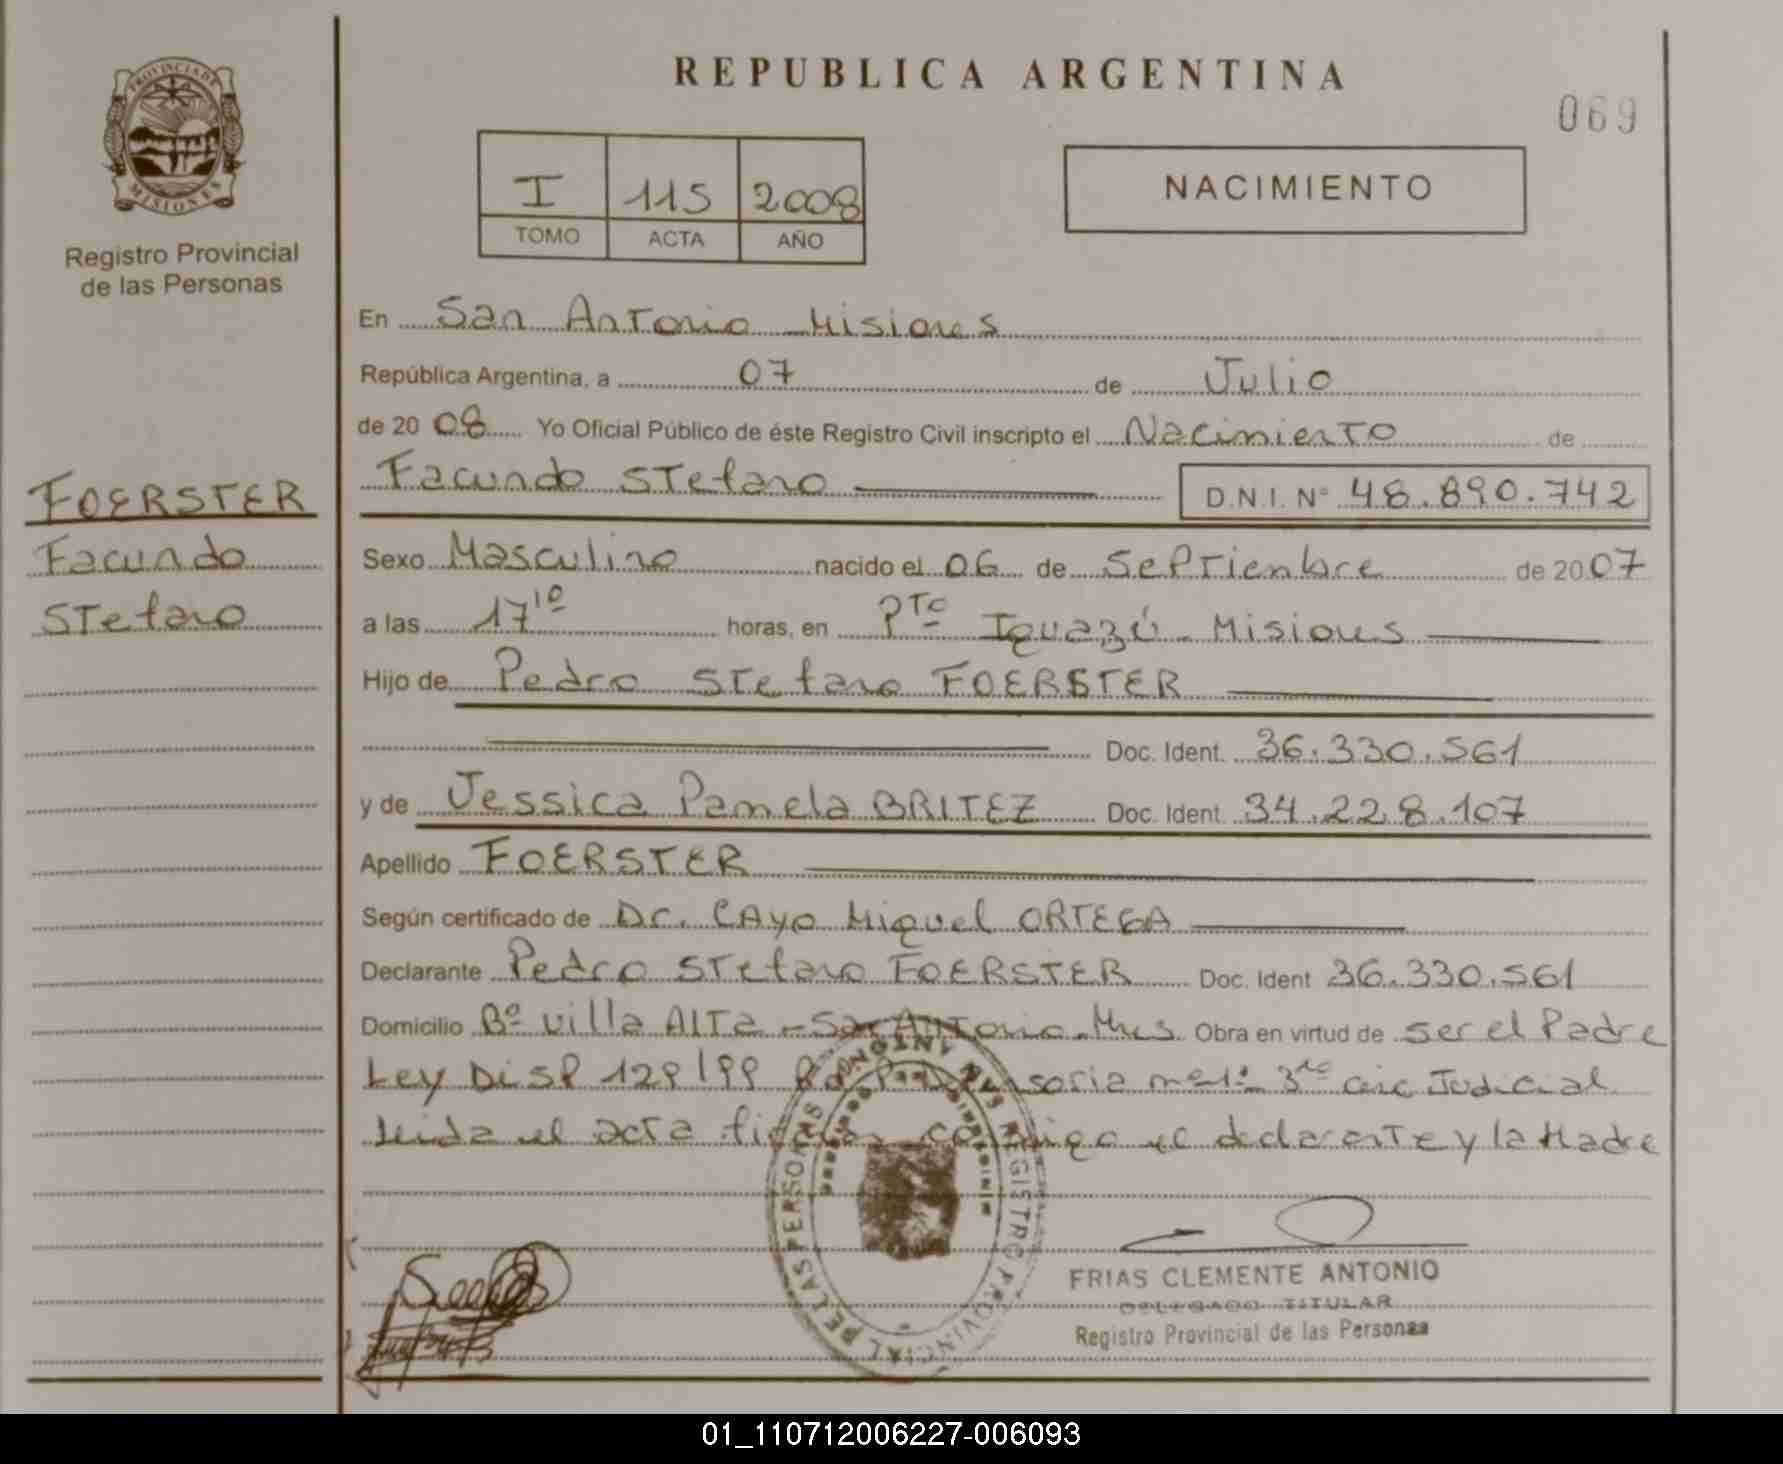 REPUBLICA ARGENTINA
069
PROVINCIA DE MISIONES
Registro Provincial
de las Personas
I 115 2008
TOMO ACTA AÑO
NACIMIENTO
En San Antonio Misiones
República Argentina, a 07 de Julio
de 2008 Yo Oficial Público de éste Registro Civil inscripto el Nacimiento de
Facundo Stefano D.N.I. N° 48.890.742
FOERSTER
Facundo
Stefano
Sexo Masculino nacido el 06 de Septiembre de 2007
a las 17¹⁰ horas, en Pto Iguazú - Misiones
Hijo de Pedro Stefano FOERSTER
Doc. Ident. 36.330.561
y de Jessica Pamela BRITEZ Doc. Ident. 34.228.107
Apellido FOERSTER
Según certificado de Dr. CAyo Miguel ORTEGA
Declarante Pedro Stefano FOERSTER Doc. Ident 36.330.561
Domicilio Bº Villa Alta - San Antonio - Mnes Obra en virtud de ser el Padre
Ley Disp 129/99 nº1º 3ra circ Judicial
Leida el acta conmigo el declarante y la Madre
REGISTRO PROVINCIAL DE LAS PERSONAS
SAN ANTONIO
FRIAS CLEMENTE ANTONIO
DELEGADO TITULAR
Registro Provincial de las Personas
01_110712006227-006093